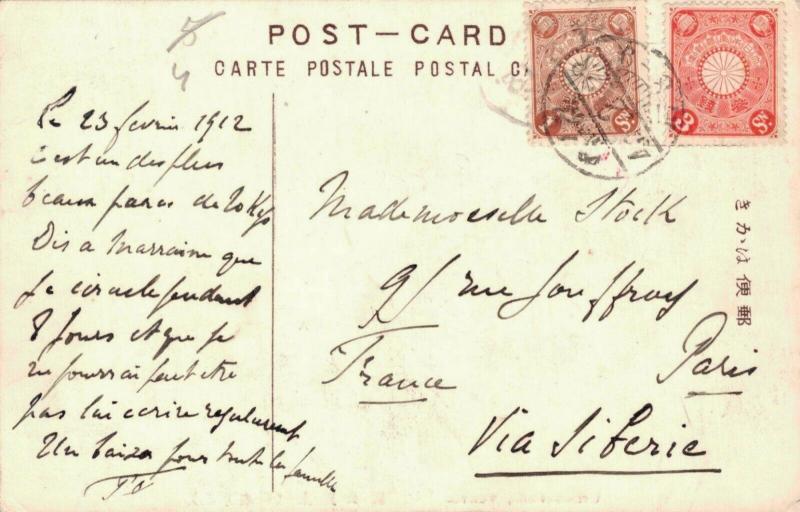 POST—CARD
CARTE POSTALE POSTAL C
Le 23 fevrier 1912
c'est un des plus
beaux parcs de Tokyo
Dis a Marraine que
je circule pendant
8 jours et que je
ne pourrai peut etre
pas lui ecrire regulierement
Un baiser pour toute la famille
Mademoiselle Stock
91 rue Jouffroy
Paris
France
Via Siberie
きかは便郵
3 Sn.